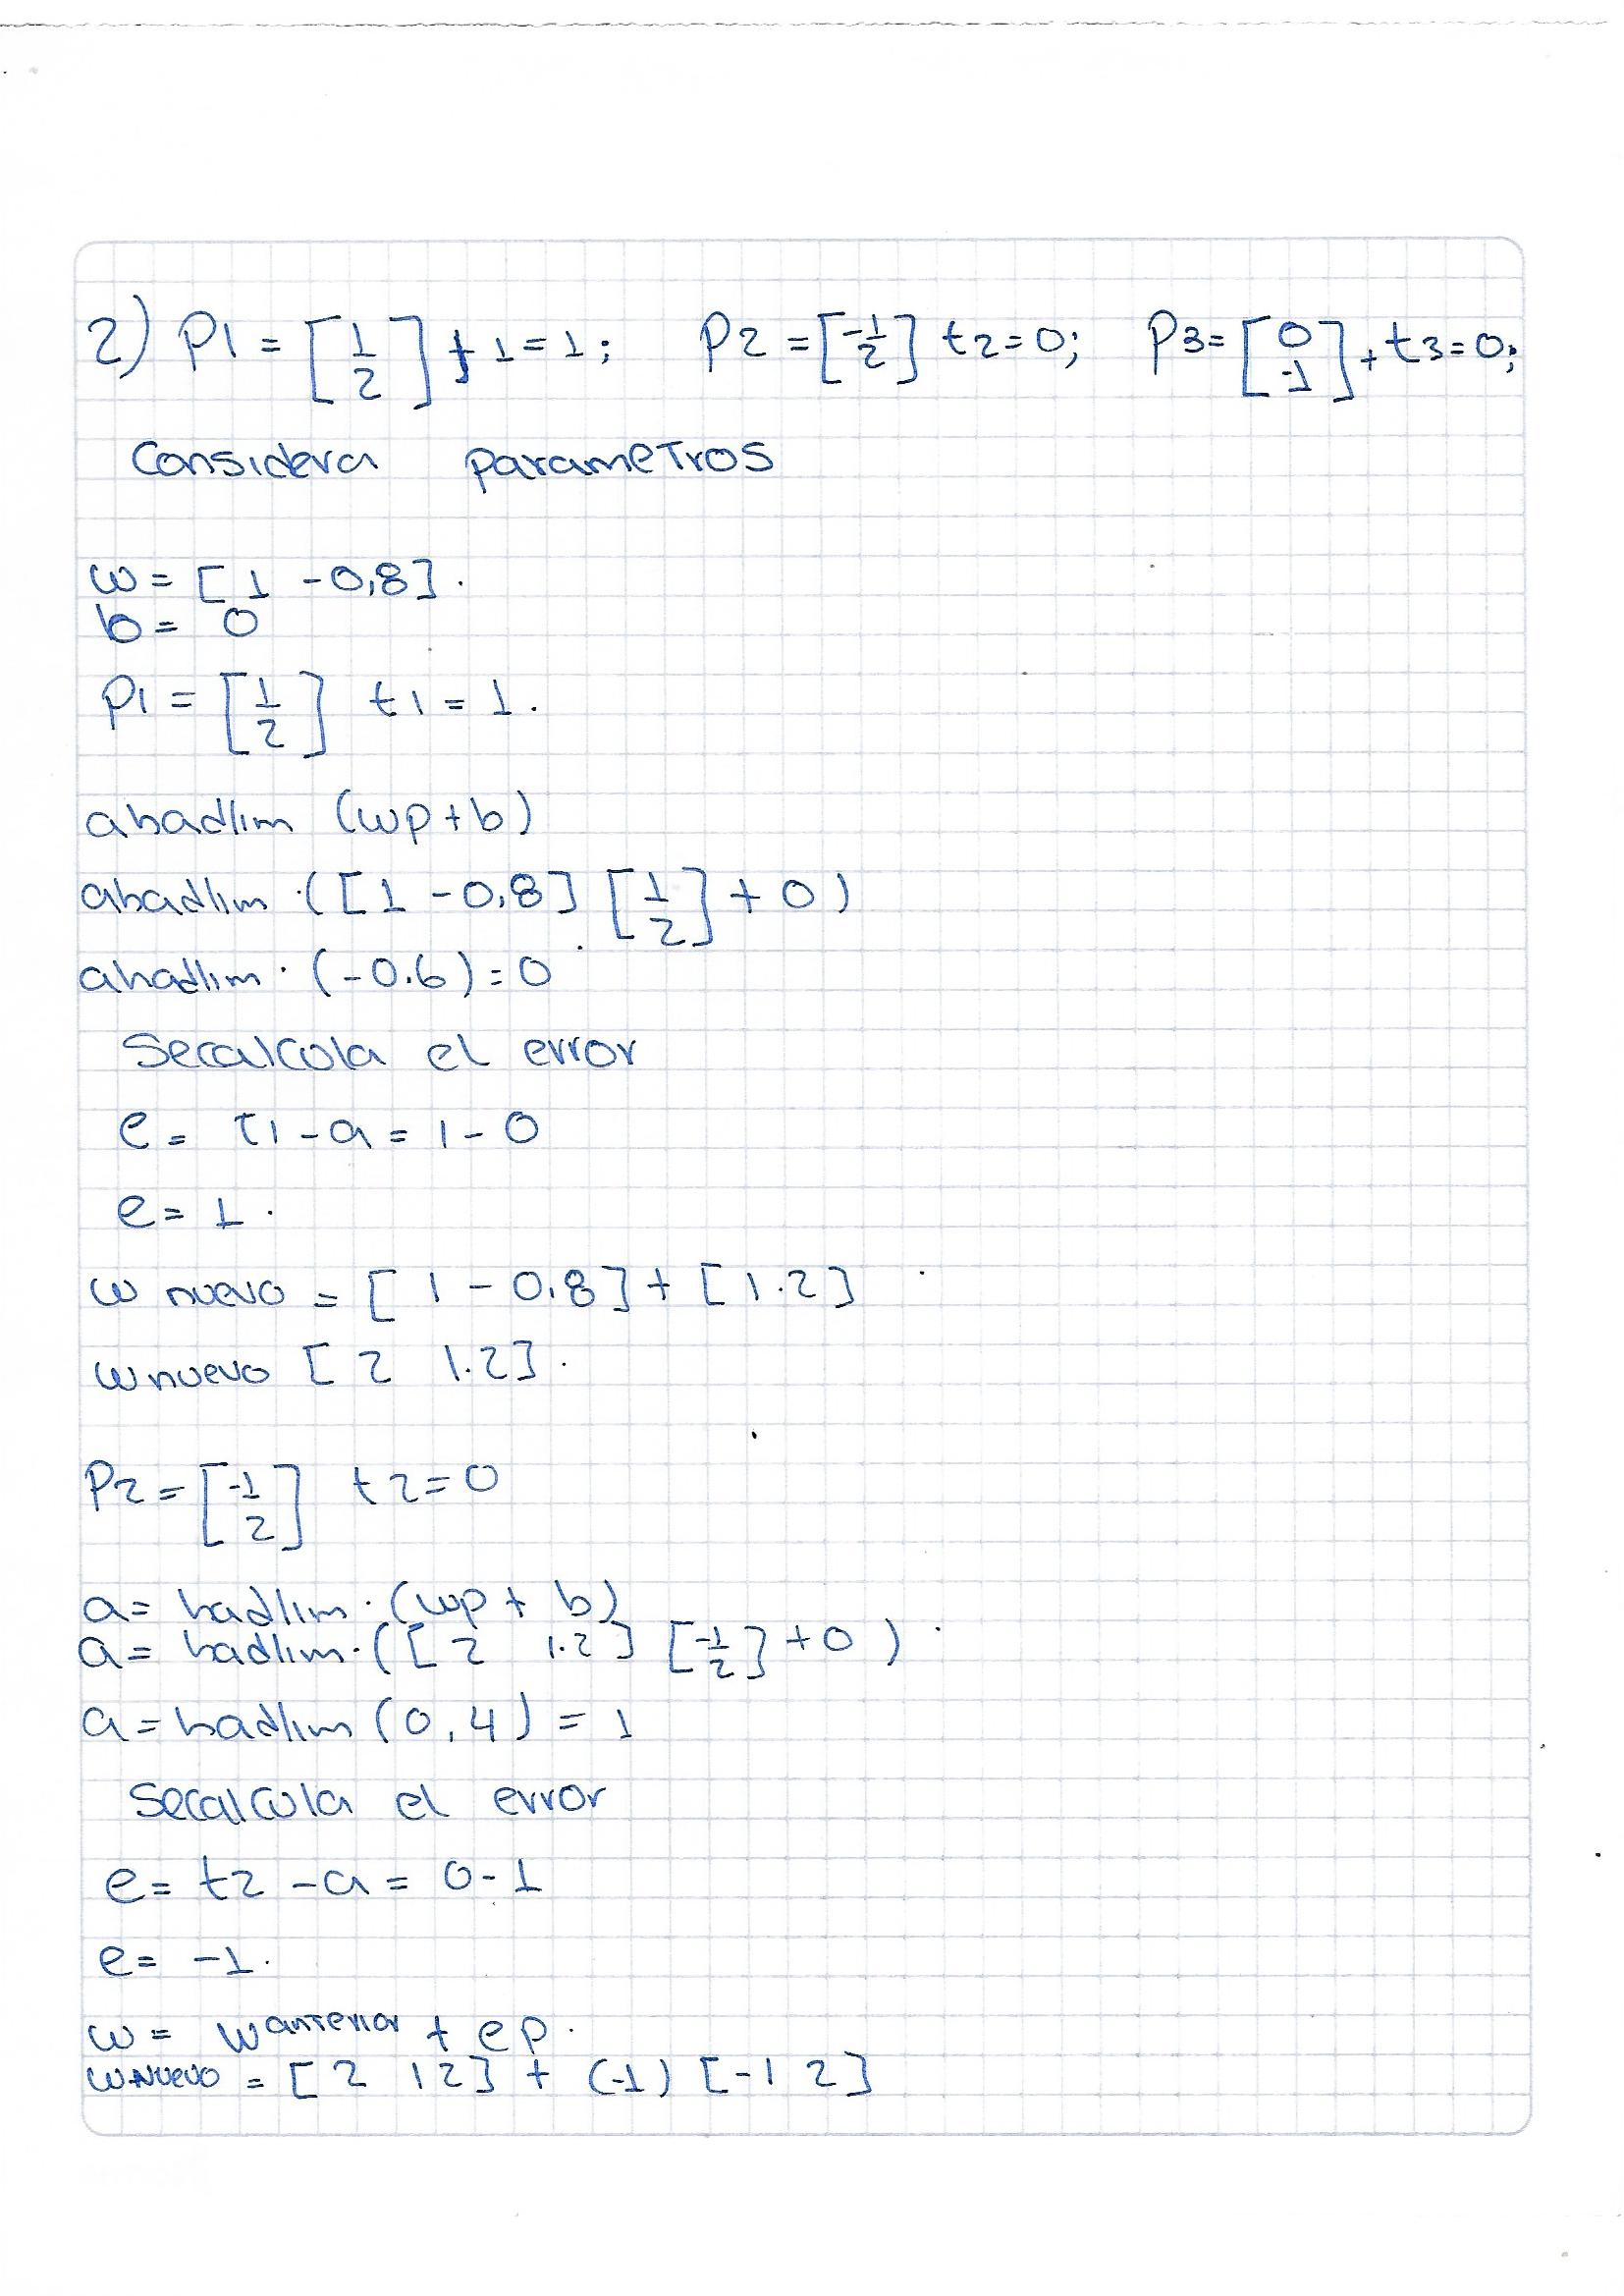 2) P1 = [1 2] t1=1; P2 = [-1 2] t2=0; P3= [0 -1], t3=0;
Considera parametros
w = [1 -0,8].
b = 0
P1 = [1 2] t1 = 1.
ahadlim (wp+b)
ahadlim.([1 -0,8] [1 2] + 0)
ahadlim. (-0.6)=0
Secalcola el error
e = t1-a = 1-0
e = 1.
w nuevo = [1 -0.8] + [1.2]
w nuevo [2 1.2].
P2 = [-1 2] t2=0
a= hadlim.(wp+ b)
a= hadlim.([2 1.2] [-1 2] +0)
a = hadlim (0,4) = 1
Secalcula el error
e= t2 -a = 0-1
e= -1.
w = wanterior + ep.
w nuevo = [2 12] + (-1) [-1 2]